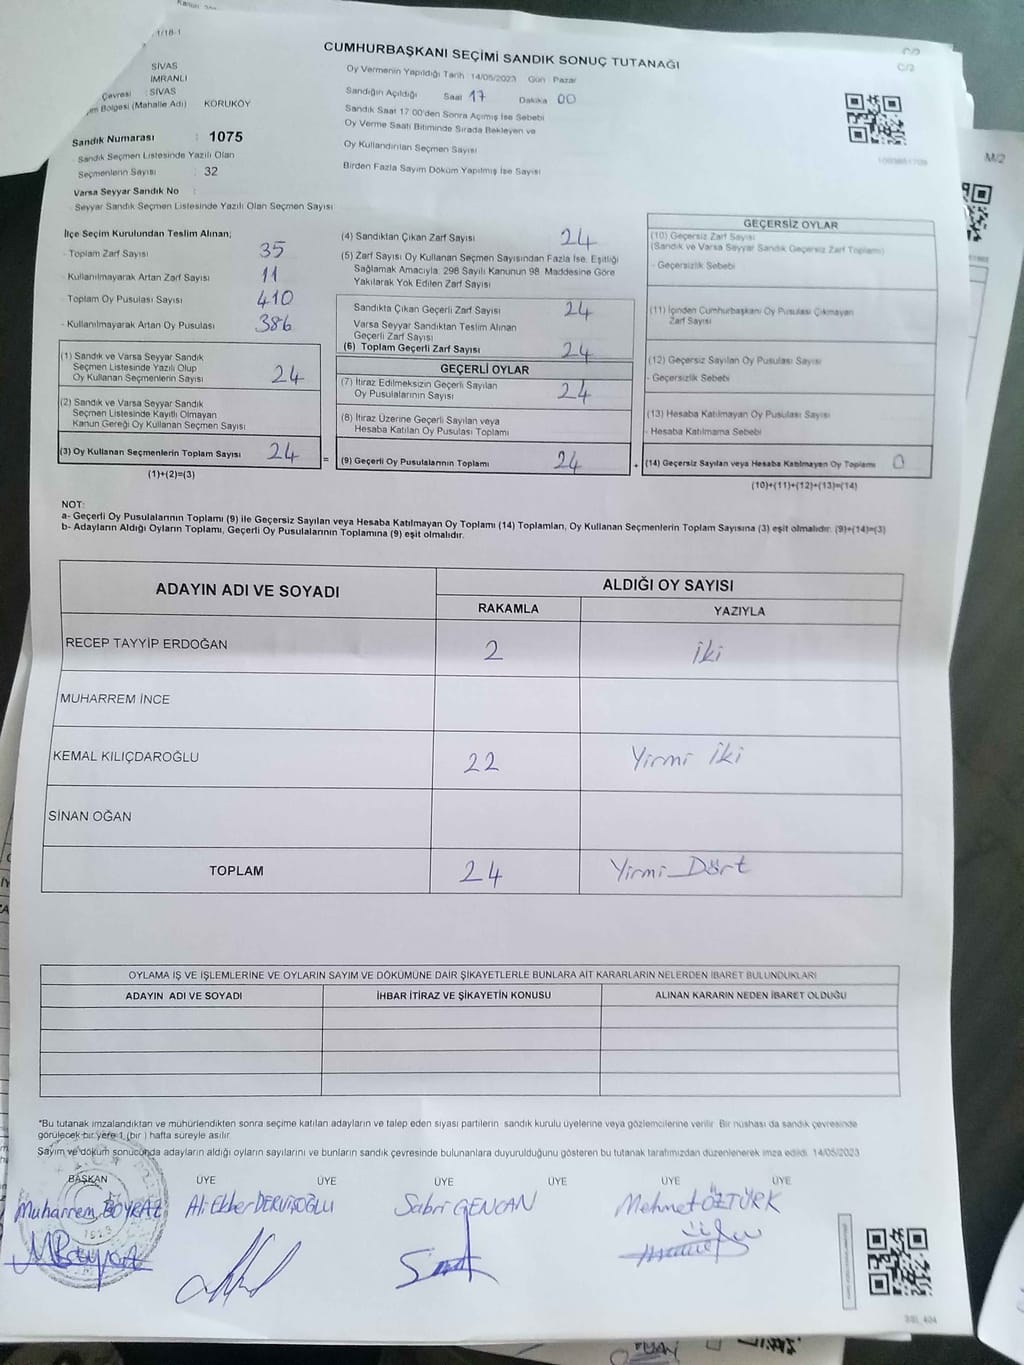 1/18-1
CUMHURBAŞKANI SEÇİMİ SANDIK SONUÇ TUTANAĞI
C/2
C/2
SİVAS
İMRANLI
Çevresi : SİVAS
Bölgesi (Mahalle Adı) KORUKÖY
Sandık Numarası : 1075
Sandık Seçmen Listesinde Yazılı Olan
Seçmenlerin Sayısı : 32
Varsa Seyyar Sandık No :
Seyyar Sandık Seçmen Listesinde Yazılı Olan Seçmen Sayısı
Oy Vermenin Yapıldığı Tarih : 14/05/2023 Gün : Pazar
Sandığın Açıldığı Saat 17 Dakika 00
Sandık Saat 17:00'den Sonra Açılmış İse Sebebi
Oy Verme Saati Bitiminde Sırada Bekleyen ve
Oy Kullandırılan Seçmen Sayısı
Birden Fazla Sayım Döküm Yapılmış İse Sayısı
M/2
İlçe Seçim Kurulundan Teslim Alınan;
- Toplam Zarf Sayısı 35
- Kullanılmayarak Artan Zarf Sayısı 11
- Toplam Oy Pusulası Sayısı 410
- Kullanılmayarak Artan Oy Pusulası 386
(1) Sandık ve Varsa Seyyar Sandık
Seçmen Listesinde Yazılı Olup
Oy Kullanan Seçmenlerin Sayısı 24
(2) Sandık ve Varsa Seyyar Sandık
Seçmen Listesinde Kayıtlı Olmayan
Kanun Gereği Oy Kullanan Seçmen Sayısı
(3) Oy Kullanan Seçmenlerin Toplam Sayısı 24 =
(1)+(2)=(3)
(4) Sandıktan Çıkan Zarf Sayısı 24
(5) Zarf Sayısı Oy Kullanan Seçmen Sayısından Fazla İse, Eşitliği
Sağlamak Amacıyla, 298 Sayılı Kanunun 98. Maddesine Göre
Yakılarak Yok Edilen Zarf Sayısı
Sandıkta Çıkan Geçerli Zarf Sayısı 24
Varsa Seyyar Sandıktan Teslim Alınan
Geçerli Zarf Sayısı
(6) Toplam Geçerli Zarf Sayısı 24
GEÇERLİ OYLAR
(7) İtiraz Edilmeksizin Geçerli Sayılan
Oy Pusulalarının Sayısı 24
(8) İtiraz Üzerine Geçerli Sayılan veya
Hesaba Katılan Oy Pusulası Toplamı
(9) Geçerli Oy Pusulalarının Toplamı 24 +
GEÇERSİZ OYLAR
(10) Geçersiz Zarf Sayısı
(Sandık ve Varsa Seyyar Sandık Geçersiz Zarf Toplamı)
- Geçersizlik Sebebi
(11) İçinden Cumhurbaşkanı Oy Pusulası Çıkmayan
Zarf Sayısı
(12) Geçersiz Sayılan Oy Pusulası Sayısı
- Geçersizlik Sebebi
(13) Hesaba Katılmayan Oy Pusulası Sayısı
- Hesaba Katılmama Sebebi
(14) Geçersiz Sayılan veya Hesaba Katılmayan Oy Toplamı 0
(10)+(11)+(12)+(13)=(14)
NOT:
a- Geçerli Oy Pusulalarının Toplamı (9) ile Geçersiz Sayılan veya Hesaba Katılmayan Oy Toplamı (14) Toplamları, Oy Kullanan Seçmenlerin Toplam Sayısına (3) eşit olmalıdır. (9)+(14)=(3)
b- Adayların Aldığı Oyların Toplamı, Geçerli Oy Pusulalarının Toplamına (9) eşit olmalıdır.
ADAYIN ADI VE SOYADI
ALDIĞI OY SAYISI
RAKAMLA YAZIYLA
RECEP TAYYİP ERDOĞAN 2 iki
MUHARREM İNCE
KEMAL KILIÇDAROĞLU 22 Yirmi İki
SİNAN OĞAN
TOPLAM 24 Yirmi_Dört
OYLAMA İŞ VE İŞLEMLERİNE VE OYLARIN SAYIM VE DÖKÜMÜNE DAİR ŞİKAYETLERLE BUNLARA AİT KARARLARIN NELERDEN İBARET BULUNDUKLARI
ADAYIN ADI VE SOYADI İHBAR İTİRAZ VE ŞİKAYETİN KONUSU ALINAN KARARIN NEDEN İBARET OLDUĞU
*Bu tutanak imzalandıktan ve mühürlendikten sonra seçime katılan adayların ve talep eden siyasi partilerin sandık kurulu üyelerine veya gözlemcilerine verilir. Bir nüshası da sandık çevresinde
görülecek bir yere 1 (bir ) hafta süreyle asılır.
Sayım ve döküm sonucunda adayların aldığı oyların sayılarını ve bunların sandık çevresinde bulunanlara duyurulduğunu gösteren bu tutanak tarafımızdan düzenlenerek imza edildi. 14/05/2023
BAŞKAN ÜYE ÜYE ÜYE ÜYE ÜYE ÜYE
Muharrem BOYRAZ Ali Ekber DERVİŞOĞLU Sabri GENCAN Mehmet ÖZTÜRK